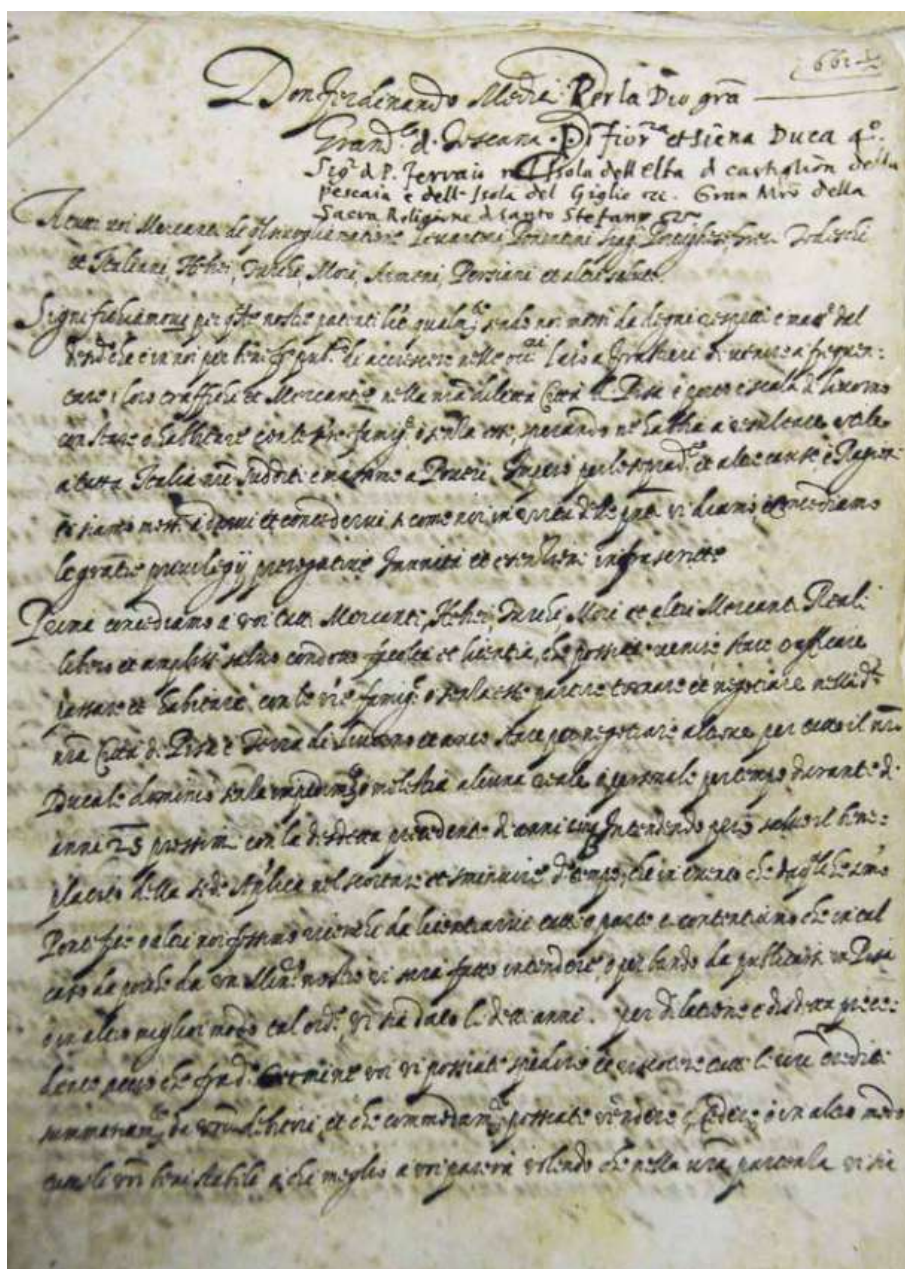 662
Don Ferdinando Medici Per la Dio grã
Grand. d. Toscana. Di Fior.za et Siena Duca 4.o
Sig.r d. P. Ferraio nell Isola dell Elba d castiglion della
pescaia e dell Isola del Giglio ecc. Gran Mrõ della
Sacra Religione d Santo Stefano
A tutti voi Mercanti di natione, Levantini Ponentini Spag. Portughesi, Greci Todeschi
et Italiani, Hebrei, Turchi, Mori, Armeni, Persiani et altri salute
Significhiamo per nostre patenti qualm. noi mossi da degni respetti e mag. dal
desid. che è in noi per benef. pub. di accrescere nelle a forestieri di venire a frequen:
tare i loro traffichi et Mercantie nella nrã diletta Città di Pisa e porto e scala di Livorno
con stare e habitare con le famig. o senza esse, sperando ne habbia a resultare utile
a tutta Italia nrĩ sudditi e massime a Poveri. Impero per le et altre cause e Ragioni
ci siamo mossi a darvi et concedervi si come noi in virtù delle vi diamo et concediamo
le gratie privilegij prerogative Immunità et esentioni infrascritte
Prima concediamo a voi tutti Mercanti, Hebrei, Turchi Mori et altri Mercanti Reali
libero et ampliss.o salvo condotto facoltà et licentia, che possiate venire stare trafficare
passare et habitare con le vrẽ famig. o senza esse partire tornare et negotiare nella d.a
nrã Città di Pisa e Terra di Livorno et anco stare per negotiare altrove per tutto il nrõ
Ducale dominio senza impedim.to o molestia alcuna reale o personale per tempo durante d.
anni 25 prossimi con la disdetta precedente d. anni Intendendo però salvo il bene:
placito della sede Ap.lica nel scortare et sminuire d. tempo, che in evento che da qualche smõ
Pontefice o altri noi fossimo ricerchi da licentiarvi tutti o parte ci contentiamo che in tal
caso da noi o da un Min. nostro vi sarà fatto intendere, o per bando da publicarsi in Pisa
o in altro miglior modo tal ord. vi sia dato li detti anni per dilatione e disdetta prece:
dente acciò che fra d. termine voi vi possiate spedire et riscotere tutti li vrĩ crediti
summariam. da vrĩ debitori, et che commodam. possiate vendere, cedere o in altro modo
vrĩ beni stabili a chi meglio a voi parerà volendo che nella vrã partenza vi sia